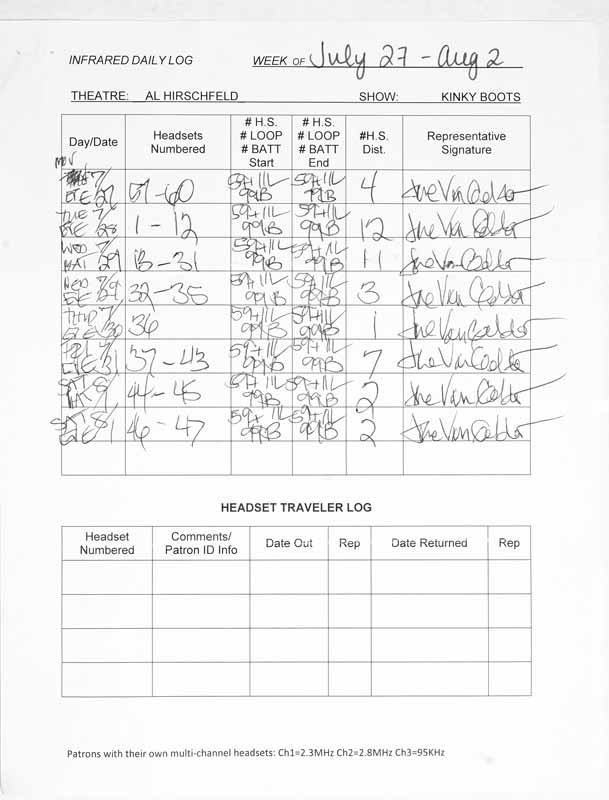 INFRARED DAILY LOG WEEK OF July 27 - Aug 2
THEATRE: AL HIRSCHFELD SHOW: KINKY BOOTS
Day/Date Headsets Numbered # H.S. # LOOP # BATT Start # H.S. # LOOP # BATT End #H.S. Dist. Representative Signature
MON 7/
EVE 27 57-60 59+1L 99B 59+1L 99B 4
TUE 7/
EVE 28 1-12 59+1L 99B 59+1L 99B 12
WED 7/
MAT 29 13-31 59+1L 99B 59+1L 99B 11
WED 7/29
EVE 32-35 59+1L 99B 59+1L 99B 3
THU 7/
EVE 30 36 59+1L 99B 59+1L 99B 1
FRI 7/
EVE 31 37-43 59+1L 99B 59+1L 99B 7
SAT 8/
MAT 1 44-45 59+1L 99B 59+1L 99B 2
SAT 8/
EVE 1 46-47 59+1L 99B 59+1L 99B 2
HEADSET TRAVELER LOG
Headset Numbered Comments/ Patron ID Info Date Out Rep Date Returned Rep
Patrons with their own multi-channel headsets: Ch1=2.3MHz Ch2=2.8MHz Ch3=95KHz